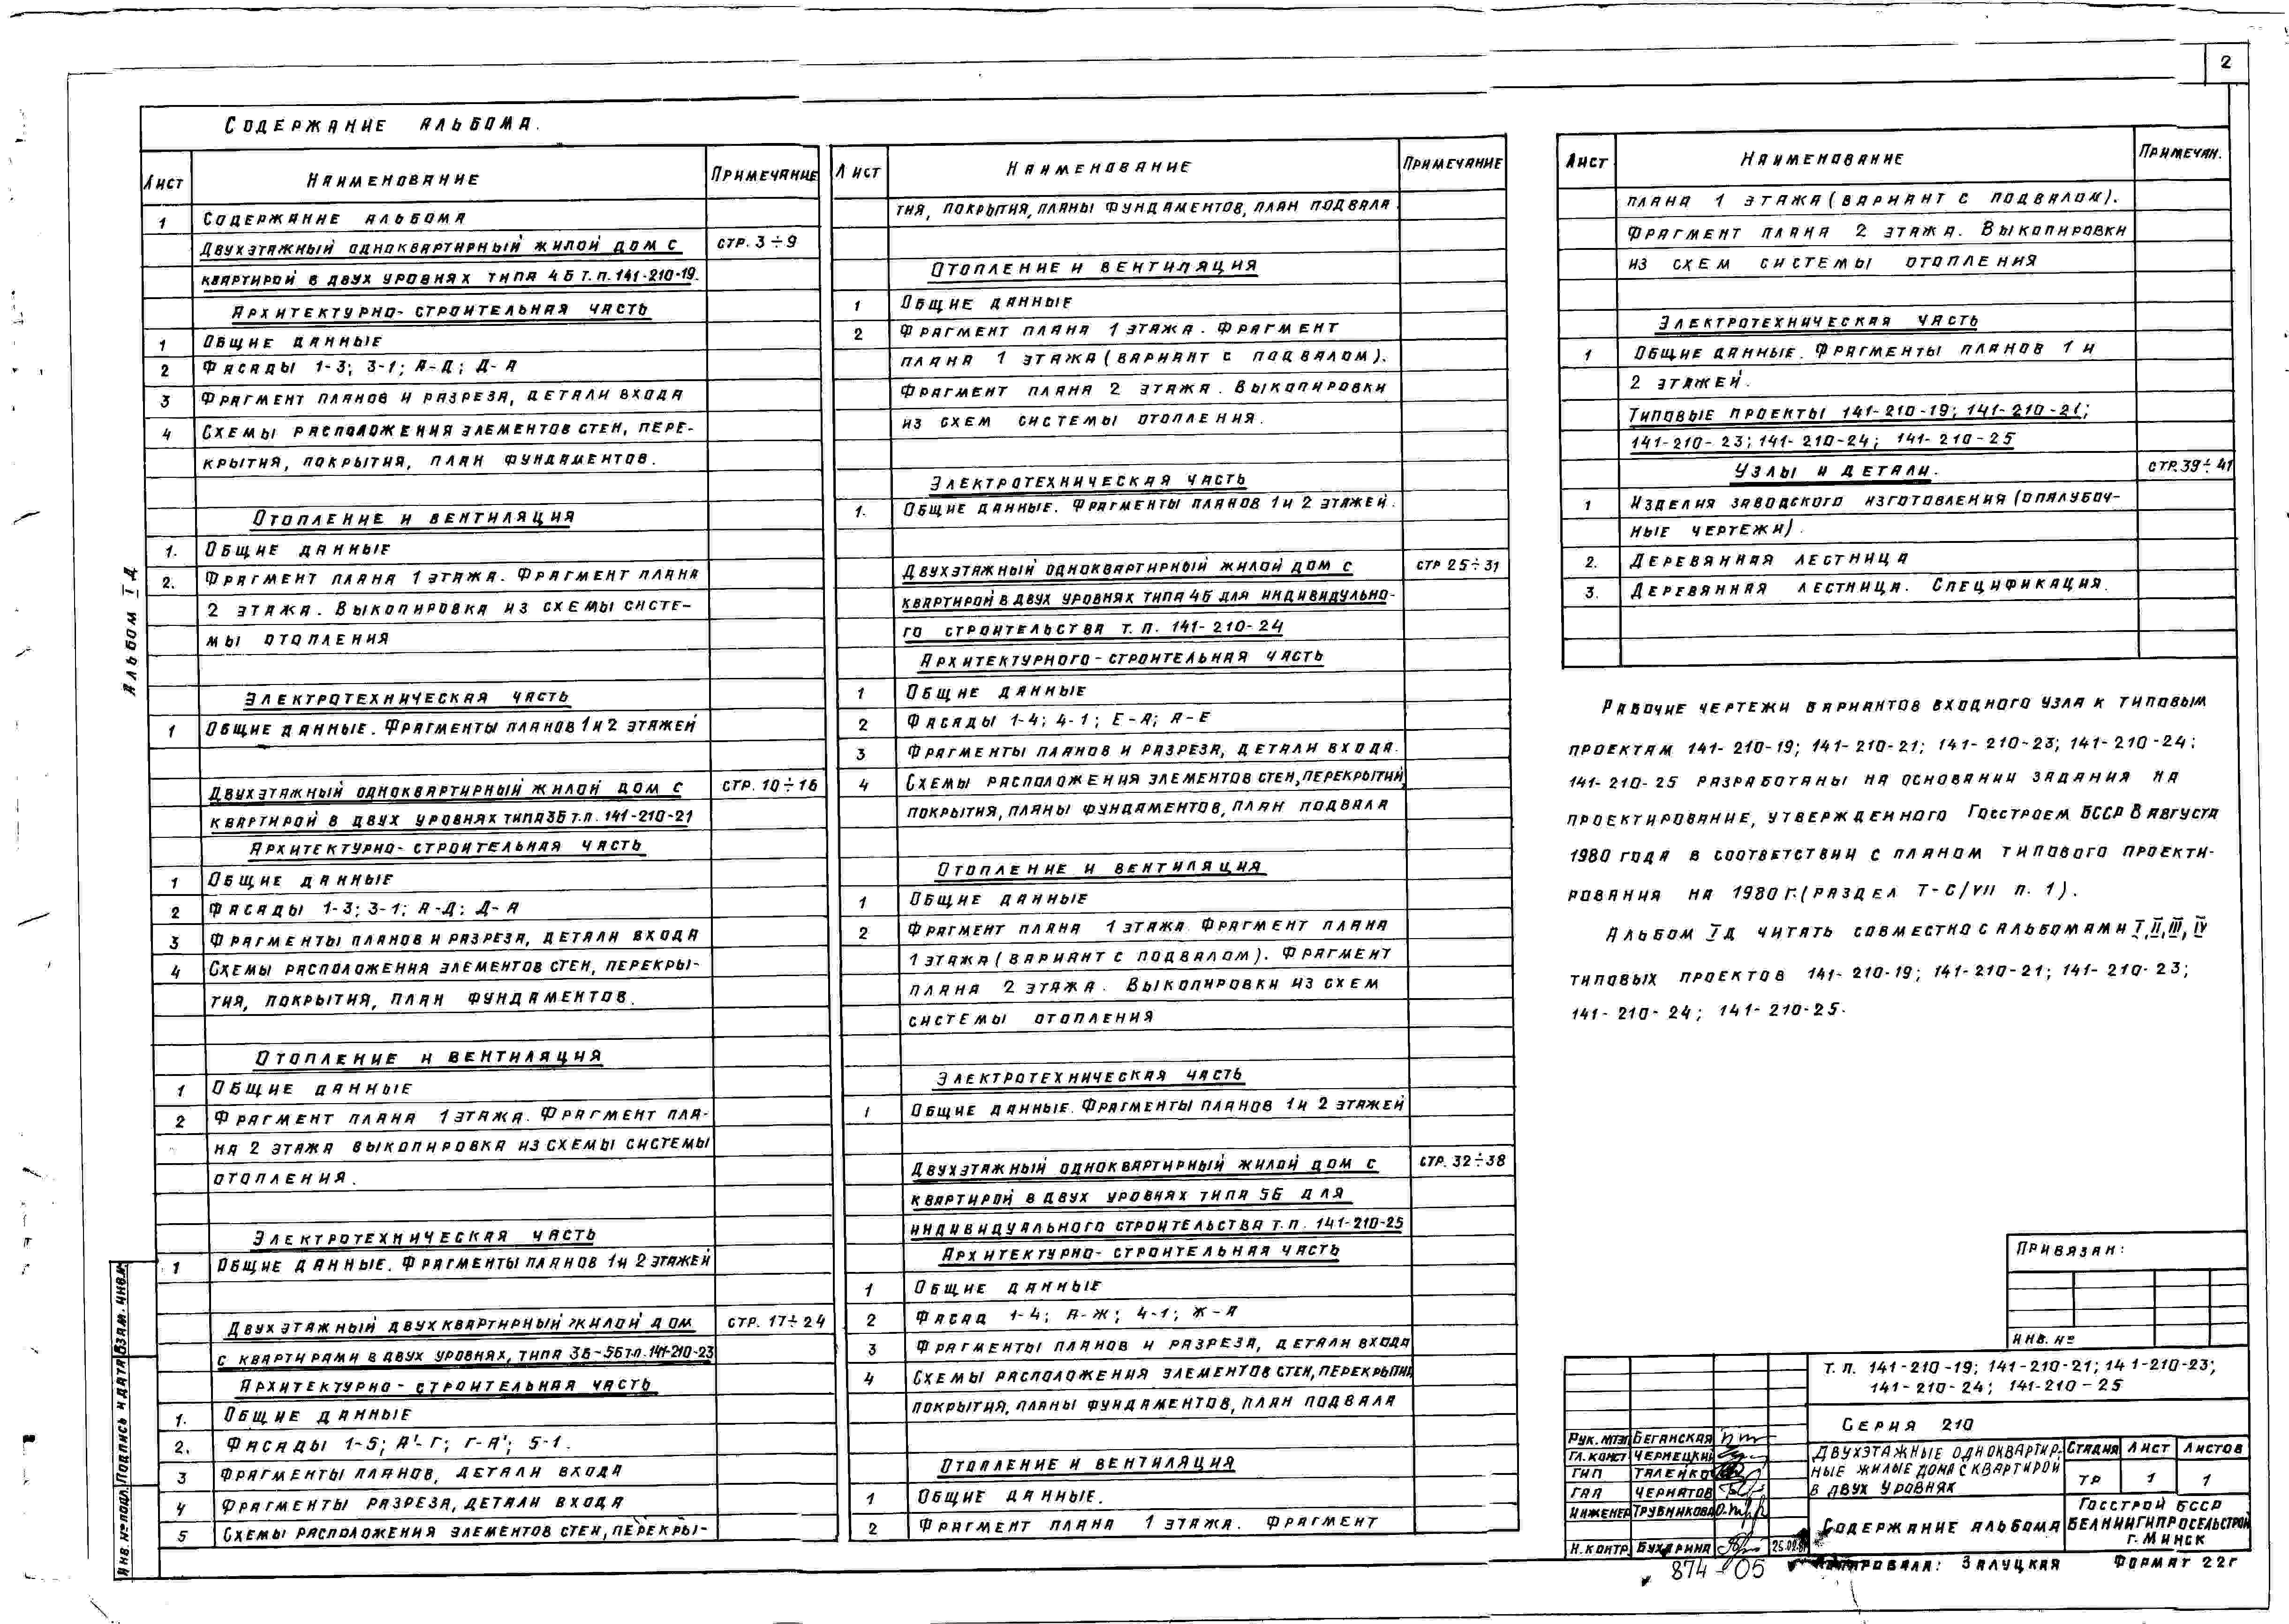 2
Содержание альбома.
Лист Наименование Примечание
1 Содержание альбома
Двухэтажный одноквартирный жилой дом с стр. 3÷9
квартирой в двух уровнях типа 4Б т.п. 141-210-19.
Архитектурно-строительная часть
1 Общие данные
2 Фасады 1-3; 3-1; А-Д; Д-А
3 Фрагмент планов и разреза, детали входа
4 Схемы расположения элементов стен, пере-
крытия, покрытия, план фундаментов.
Отопление и вентиляция
1. Общие данные
2. Фрагмент плана 1 этажа. Фрагмент плана
2 этажа. Выкопировка из схемы систе-
мы отопления
Электротехническая часть
1 Общие данные. Фрагменты планов 1 и 2 этажей
Двухэтажный одноквартирный жилой дом с стр. 10÷16
квартирой в двух уровнях типа 3Б т.п. 141-210-21
Архитектурно-строительная часть
1 Общие данные
2 Фасады 1-3; 3-1; А-Д; Д-А
3 Фрагменты планов и разреза, детали входа
4 Схемы расположения элементов стен, перекры-
тия, покрытия, план фундаментов.
Отопление и вентиляция
1 Общие данные
2 Фрагмент плана 1 этажа. Фрагмент пла-
на 2 этажа выкопировка из схемы системы
отопления.
Электротехническая часть
1 Общие данные. Фрагменты планов 1 и 2 этажей
Двухэтажный двухквартирный жилой дом стр. 17÷24
с квартирами в двух уровнях, типа 3Б-5Б т.п. 141-210-23
Архитектурно-строительная часть
1. Общие данные
2. Фасады 1-5; А'-Г; Г-А'; 5-1.
3 Фрагменты планов, детали входа
4 Фрагменты разреза, детали входа
5 Схемы расположения элементов стен, перекры-
Лист Наименование Примечание
тия, покрытия, планы фундаментов, план подвала
Отопление и вентиляция
1 Общие данные
2 Фрагмент плана 1 этажа. Фрагмент
плана 1 этажа (вариант с подвалом).
Фрагмент плана 2 этажа. Выкопировки
из схем системы отопления.
Электротехническая часть
1. Общие данные. Фрагменты планов 1 и 2 этажей.
Двухэтажный одноквартирный жилой дом с стр 25÷31
квартирой в двух уровнях типа 4Б для индивидуально-
го строительства т.п. 141-210-24
Архитектурного-строительная часть
1 Общие данные
2 Фасады 1-4; 4-1; Е-А; А-Е
3 Фрагменты планов и разреза, детали входа.
4 Схемы расположения элементов стен, перекрытий,
покрытия, планы фундаментов, план подвала
Отопление и вентиляция
1 Общие данные
2 Фрагмент плана 1 этажа Фрагмент плана
1 этажа (вариант с подвалом). Фрагмент
плана 2 этажа. Выкопировки из схем
системы отопления
Электротехническая часть
1 Общие данные. Фрагменты планов 1 и 2 этажей
Двухэтажный одноквартирный жилой дом с стр. 32÷38
квартирой в двух уровнях типа 5Б для
индивидуального строительства т.п. 141-210-25
Архитектурно-строительная часть
1 Общие данные
2 Фасад 1-4; А-Ж; 4-1; Ж-А
3 Фрагменты планов и разреза, детали входа
4 Схемы расположения элементов стен, перекрытий
покрытия, планы фундаментов, план подвала
Отопление и вентиляция
1 Общие данные.
2 Фрагмент плана 1 этажа. Фрагмент
Лист Наименование Примечан.
плана 1 этажа (вариант с подвалом).
Фрагмент плана 2 этажа. Выкопировки
из схем системы отопления
Электротехническая часть
1 Общие данные. Фрагменты планов 1 и
2 этажей.
Типовые проекты 141-210-19; 141-210-21;
141-210-23; 141-210-24; 141-210-25
Узлы и детали. стр. 39÷41
1 Изделия заводского изготовления (опалубоч-
ные чертежи).
2. Деревянная лестница
3. Деревянная лестница. Спецификация.
Рабочие чертежи вариантов входного узла к типовым
проектам 141-210-19; 141-210-21; 141-210-23; 141-210-24;
141-210-25 разработаны на основании задания на
проектирование, утвержденного Госстроем БССР 8 августа
1980 года в соответствии с планом типового проекти-
рования на 1980 г. (раздел Т-С/VII п. 1).
Альбом Iд читать совместно с альбомами I, II, III, IV
типовых проектов 141-210-19; 141-210-21; 141-210-23;
141-210-24; 141-210-25.
Альбом Iд
Инв.№подл. Подпись и дата Взам.инв.№
Привязан:
Инв. №
Т.п. 141-210-19; 141-210-21; 141-210-23;
141-210-24; 141-210-25
Серия 210
Рук. мтэп Беганская
Гл. конст Чернецкий
ГИП Таленко
ГАП Чернятов
Инженер Трубникова
Н. контр. Бухарина
Двухэтажные одноквартир-
ные жилые дома с квартирой
в двух уровнях
Стадия Лист Листов
ТР 1 1
Содержание альбома
Госстрой БССР
БЕЛНИИГИПРОСЕЛЬСТРОЙ
г. Минск
874-05
Копировала: Залуцкая Формат 22г